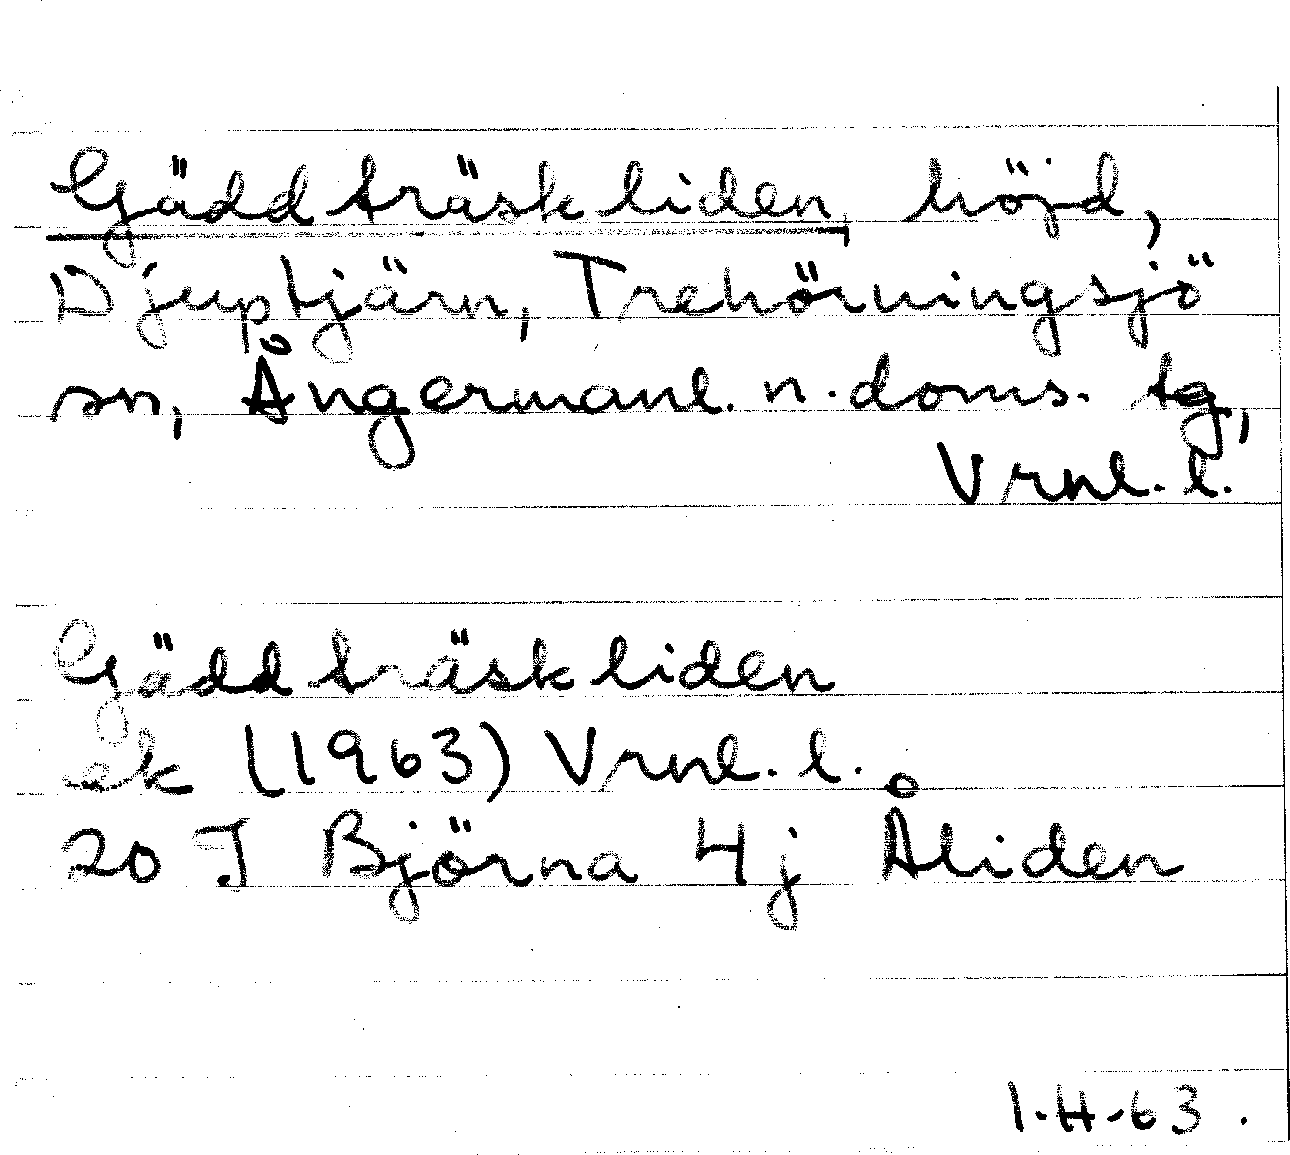 Gäddträskliden, höjd,
Djuptjärn, Trehörningsjö
sn, Ångermanl. n. doms. tg,
Vrnl. l.
Gäddträskliden
ek (1963) Vrnl. l.
20 J Björna 4j Åliden
I.H-63.